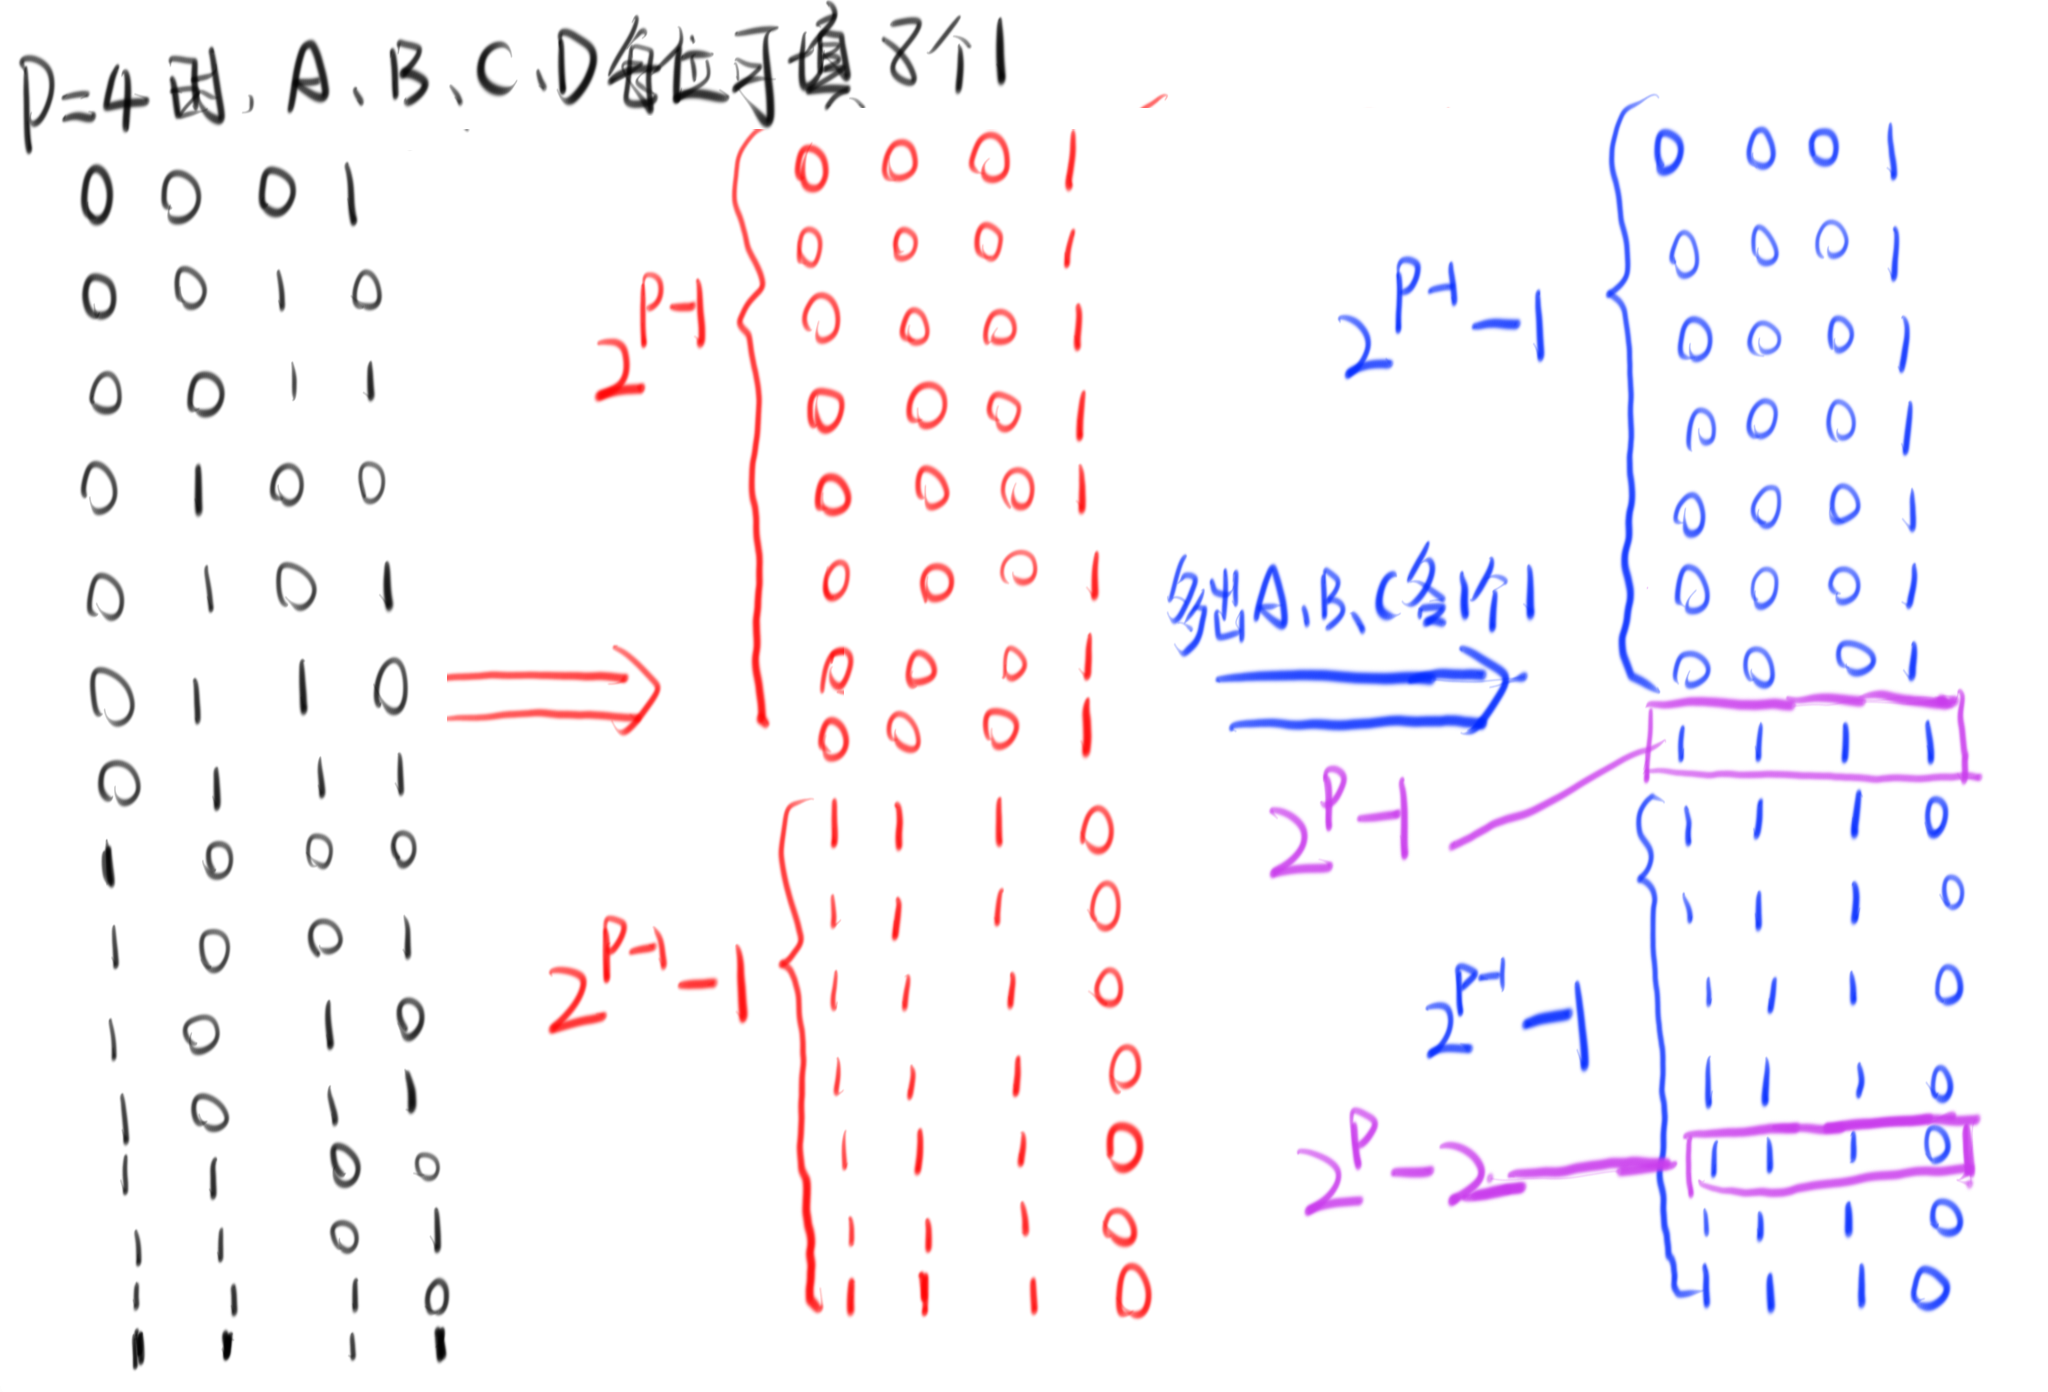 P=4时、A、B、C、D每位可填8个1
0 0 0 1
0 0 1 0
0 0 1 1
0 1 0 0
0 1 0 1
0 1 1 0
0 1 1 1
1 0 0 0
1 0 0 1
1 0 1 0
1 0 1 1
1 1 0 0
1 1 0 1
1 1 1 0
1 1 1 1
2^{P-1}
0 0 0 1
0 0 0 1
0 0 0 1
0 0 0 1
0 0 0 1
0 0 0 1
0 0 0 1
0 0 0 1
2^{P-1}-1
1 1 1 0
1 1 1 0
1 1 1 0
1 1 1 0
1 1 1 0
1 1 1 0
1 1 1 0
多出A、B、C各1个1
2^{P-1}-1
0 0 0 1
0 0 0 1
0 0 0 1
0 0 0 1
0 0 0 1
0 0 0 1
0 0 0 1
2^P-1
1 1 1 1
2^{P-1}-1
1 1 1 0
1 1 1 0
1 1 1 0
1 1 1 0
2^P-2
1 1 1 0
1 1 1 0
1 1 1 0